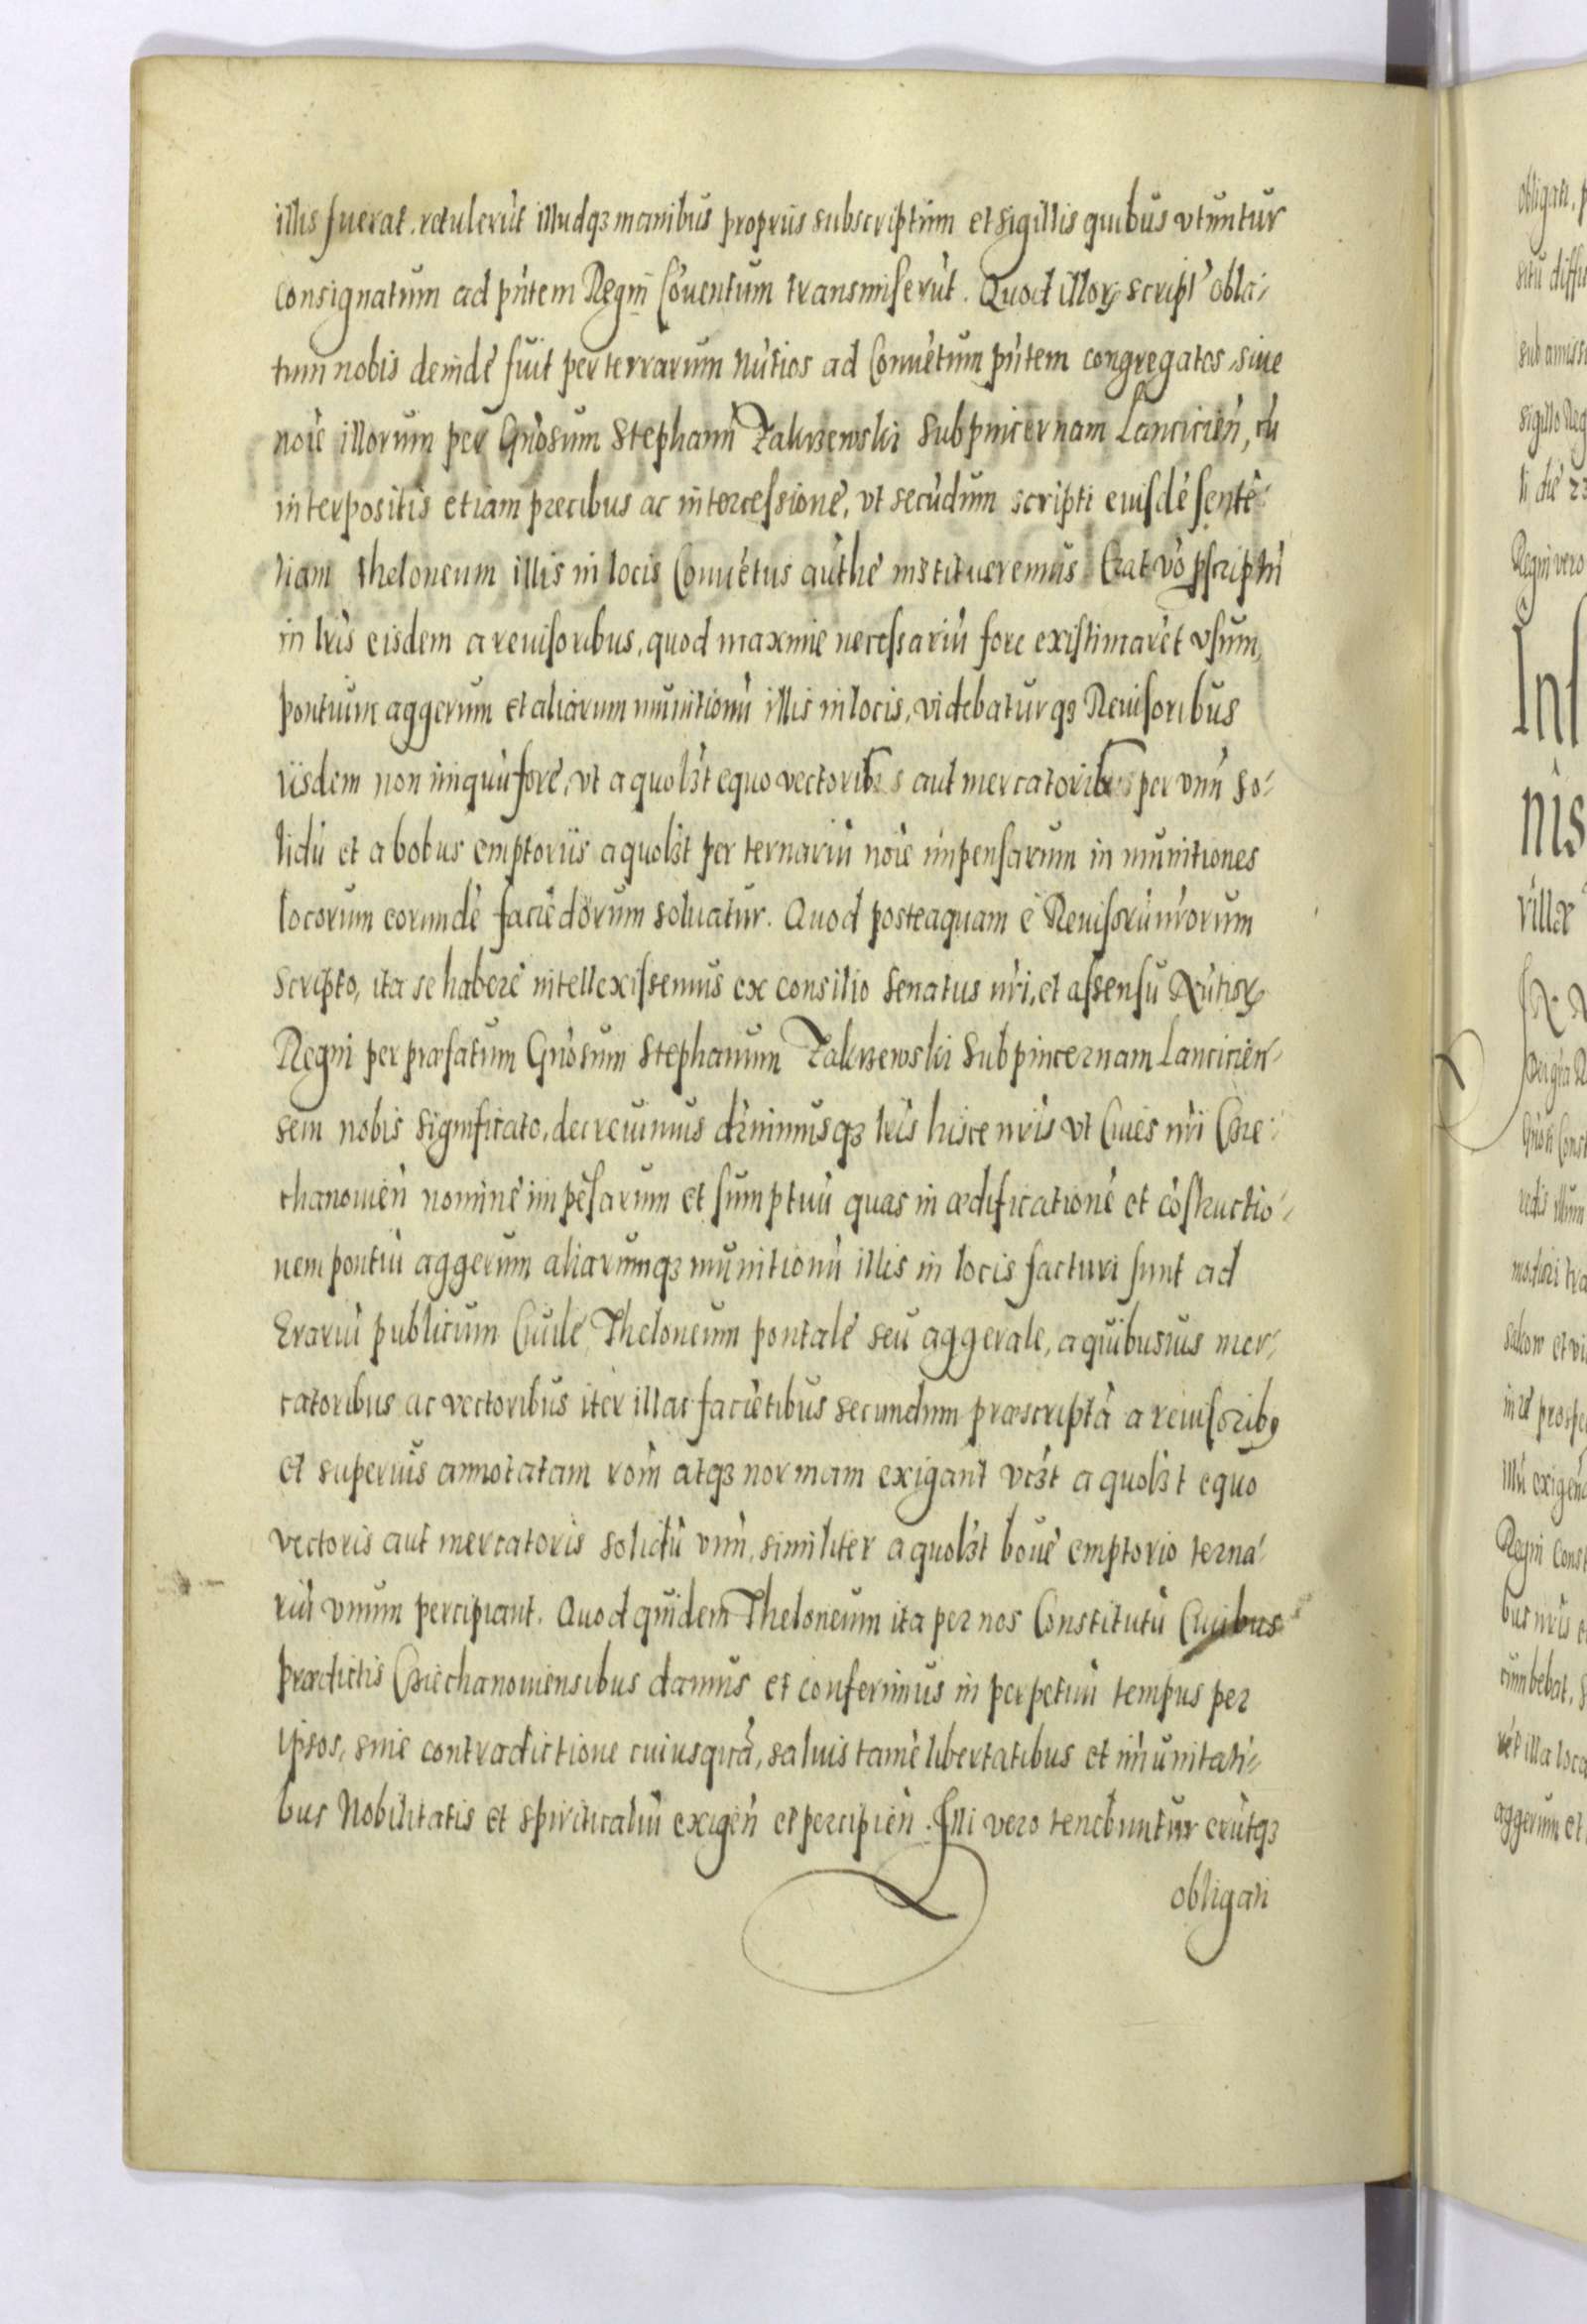 illis fuerat. retulerūt illudqꝫ manibus propriis subscriptum et sigillis quibus vtuntur
consignatum ad pn̄tem Regni Cōuentum transmiserūt. Quod illorꝝ script' obla-
tum nobis deinde fuit per terrarum Nūtios ad Conuētum pn̄tem congregatos, siue
noīe illorum per Gn̄osum Stephanū Zakrzewski Subpincernam Lancicien̄, cū
interpositis etiam precibus ac intercessione, vt secūdum scripti eiusdē sentē-
tiam theloneum illis in locis Conuētus authē institueremus. Erat vō pscriptū
in lr̄is eisdem a reuisoribus, quod maxime necessariū fore existimarēt vsum,
pontium aggerum et aliarum munitionū illis in locis, videbaturqꝫ Reuisoribus
iisdem non iniquū fore, vt a quolꝫt equo vectoribus aut mercatoribus per vnū so-
lidū et a bobus emptoriis a quolꝫt per ternariū noīe impensarum in munitiones
locorum eorundē faciēdorum soluatur. Quod posteaquam è Reuisorū nr̄orum
scripto, ita se habere intellexissemus ex consilio Senatus nr̄i, et assensu Nūtiorꝝ
Regni per præfatum Gn̄osum Stephanum Zakrzewski Subpincernam Lancicien-
sem nobis significato, decreuimus dānimusqꝫ lr̄is hisce nr̄is vt Ciues nr̄i Cie-
chanouien̄ nomine impēsarum et sumptuū quas in ædificatione et cōstructio-
nem pontiū aggerum aliarumqꝫ munitionū illis in locis facturi sunt ad
Erariū publicum Ciuile Theloneum pontale seu aggerale, a quibusuis mer-
catoribus ac vectoribus iter illac faciētibus secundum præscriptā a reuisoribꝰ
et superius annotatam rōm̄ atqꝫ normam exigant vꝫt a quolꝫt equo
vectoris aut mercatoris solidū vnū, similiter a quolꝫt boue emptorio terna-
riū vnum percipiant. Quod quidem Theloneum ita per nos Constitutū Ciuibus
prædictis Ciechanouiensibus damus et conferimus in perpetuū tempus per
ipsos, sine contradictione cuiusqꝫ, saluis tamē libertatibus et im̄unitati-
bus Nobilitatis et spiritualiū exigen̄ et percipien̄. Illi vero tenebuntur erūtqꝫ
obligati